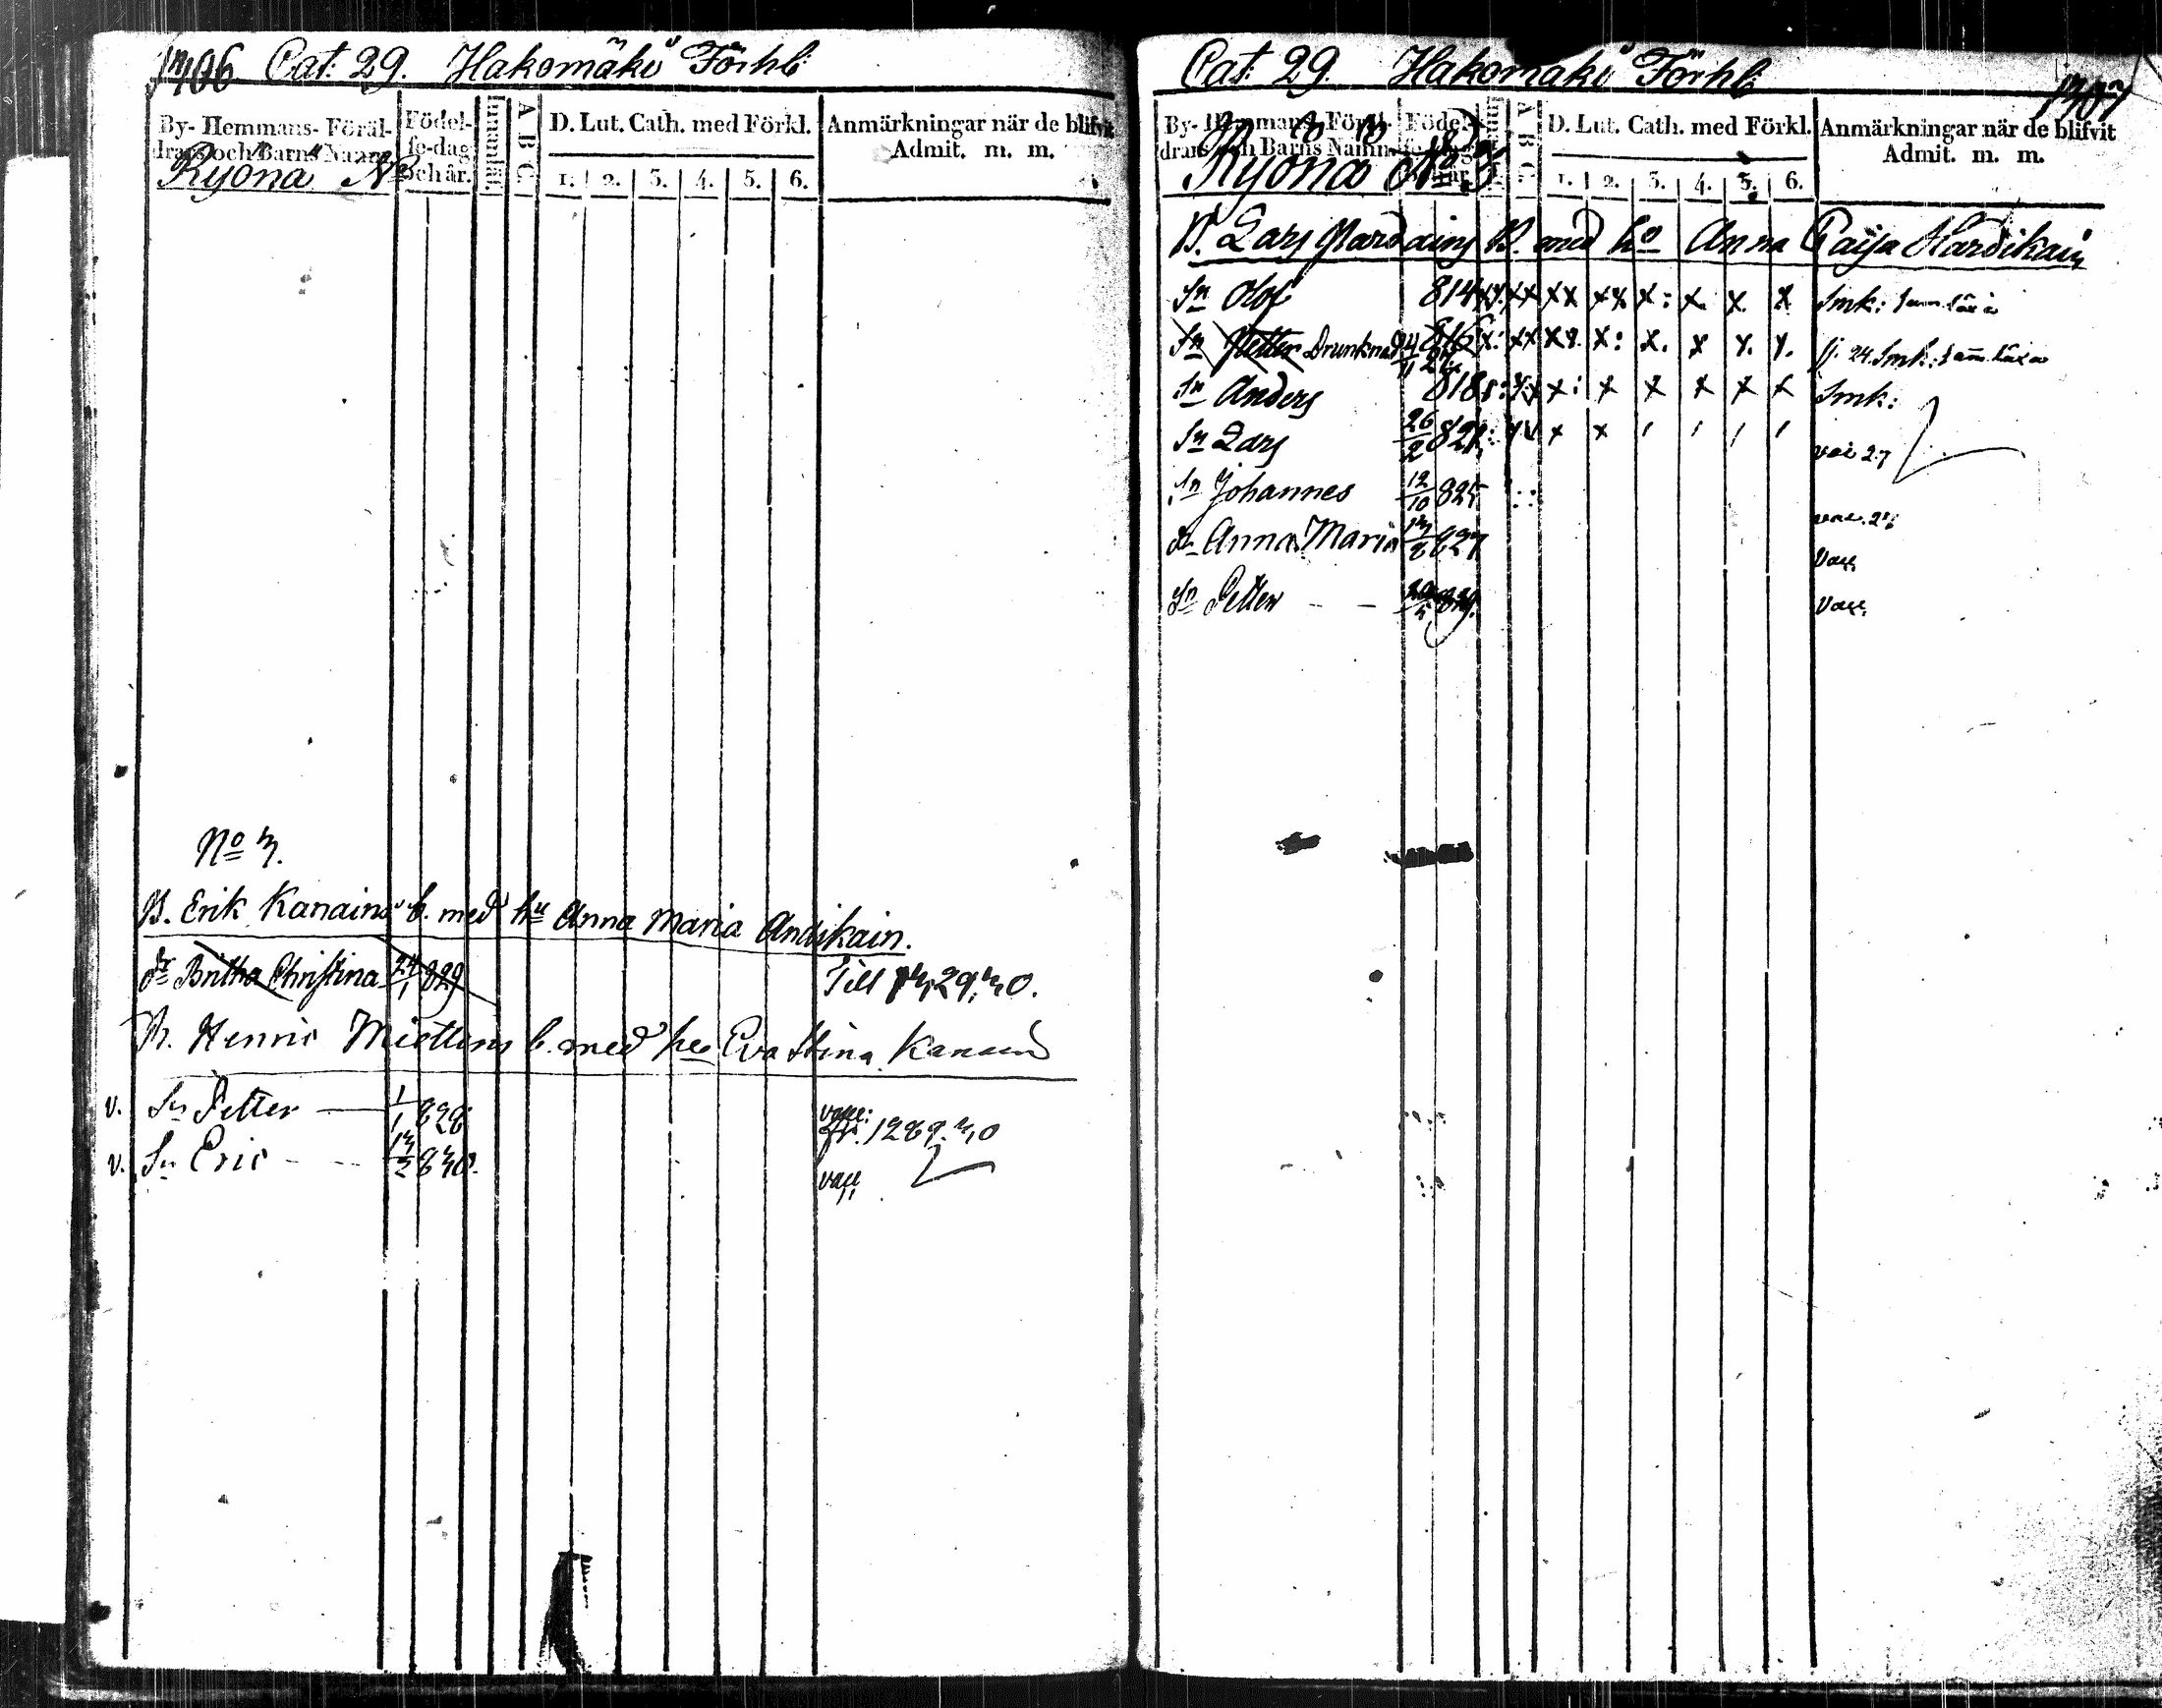 1306 Cat: 29. Hakomäki Förhb:
By- Hemmans- Föräl-
drars och Barns Namn.
Födel-
se-dag
och år.
Innanläs.
A B C.
D. Lut. Cath. med Förkl.
1. 2. 3. 4. 5. 6.
Anmärkningar när de blifvit
Admit. m. m.
Ryönä No
No 3.
B. Erik Kanains b. med hu Anna Maria Andikain.
dr Britha Christina 24/1 829 Till 29.30.
Henric Miettins b. med hu Eva Stina Kanain
v. Sn Petter 1/1 828 vacc: fr. 1289.30
v. Sn Eric 13/2 830. vacc
Cat: 29. Hakomäki Förhb: 1307
By- Hemmans- Föräl-
drars och Barns Namn
Födel-
se-dag
och år.
A B C.
D. Lut. Cath. med Förkl.
1. 2. 3. 4. 5. 6.
Anmärkningar när de blifvit
Admit. m. m.
Ryönä No 3
B. Lars B. med hu Anna Caisa
Sn Olof 814 x x x x x x x x: x. x. x Smk:
Sn Petter Drunknad 816 x: x x x x. x: x. x x. x. 24. Smk:
Sn Anders 818 x: x x x x x Smk:
Sn Lars 26/2 821 x x
Sn Johannes 12/10 825
dr Anna Maria 13/8 827 Vacc.
Sn Petter 829. Vacc.